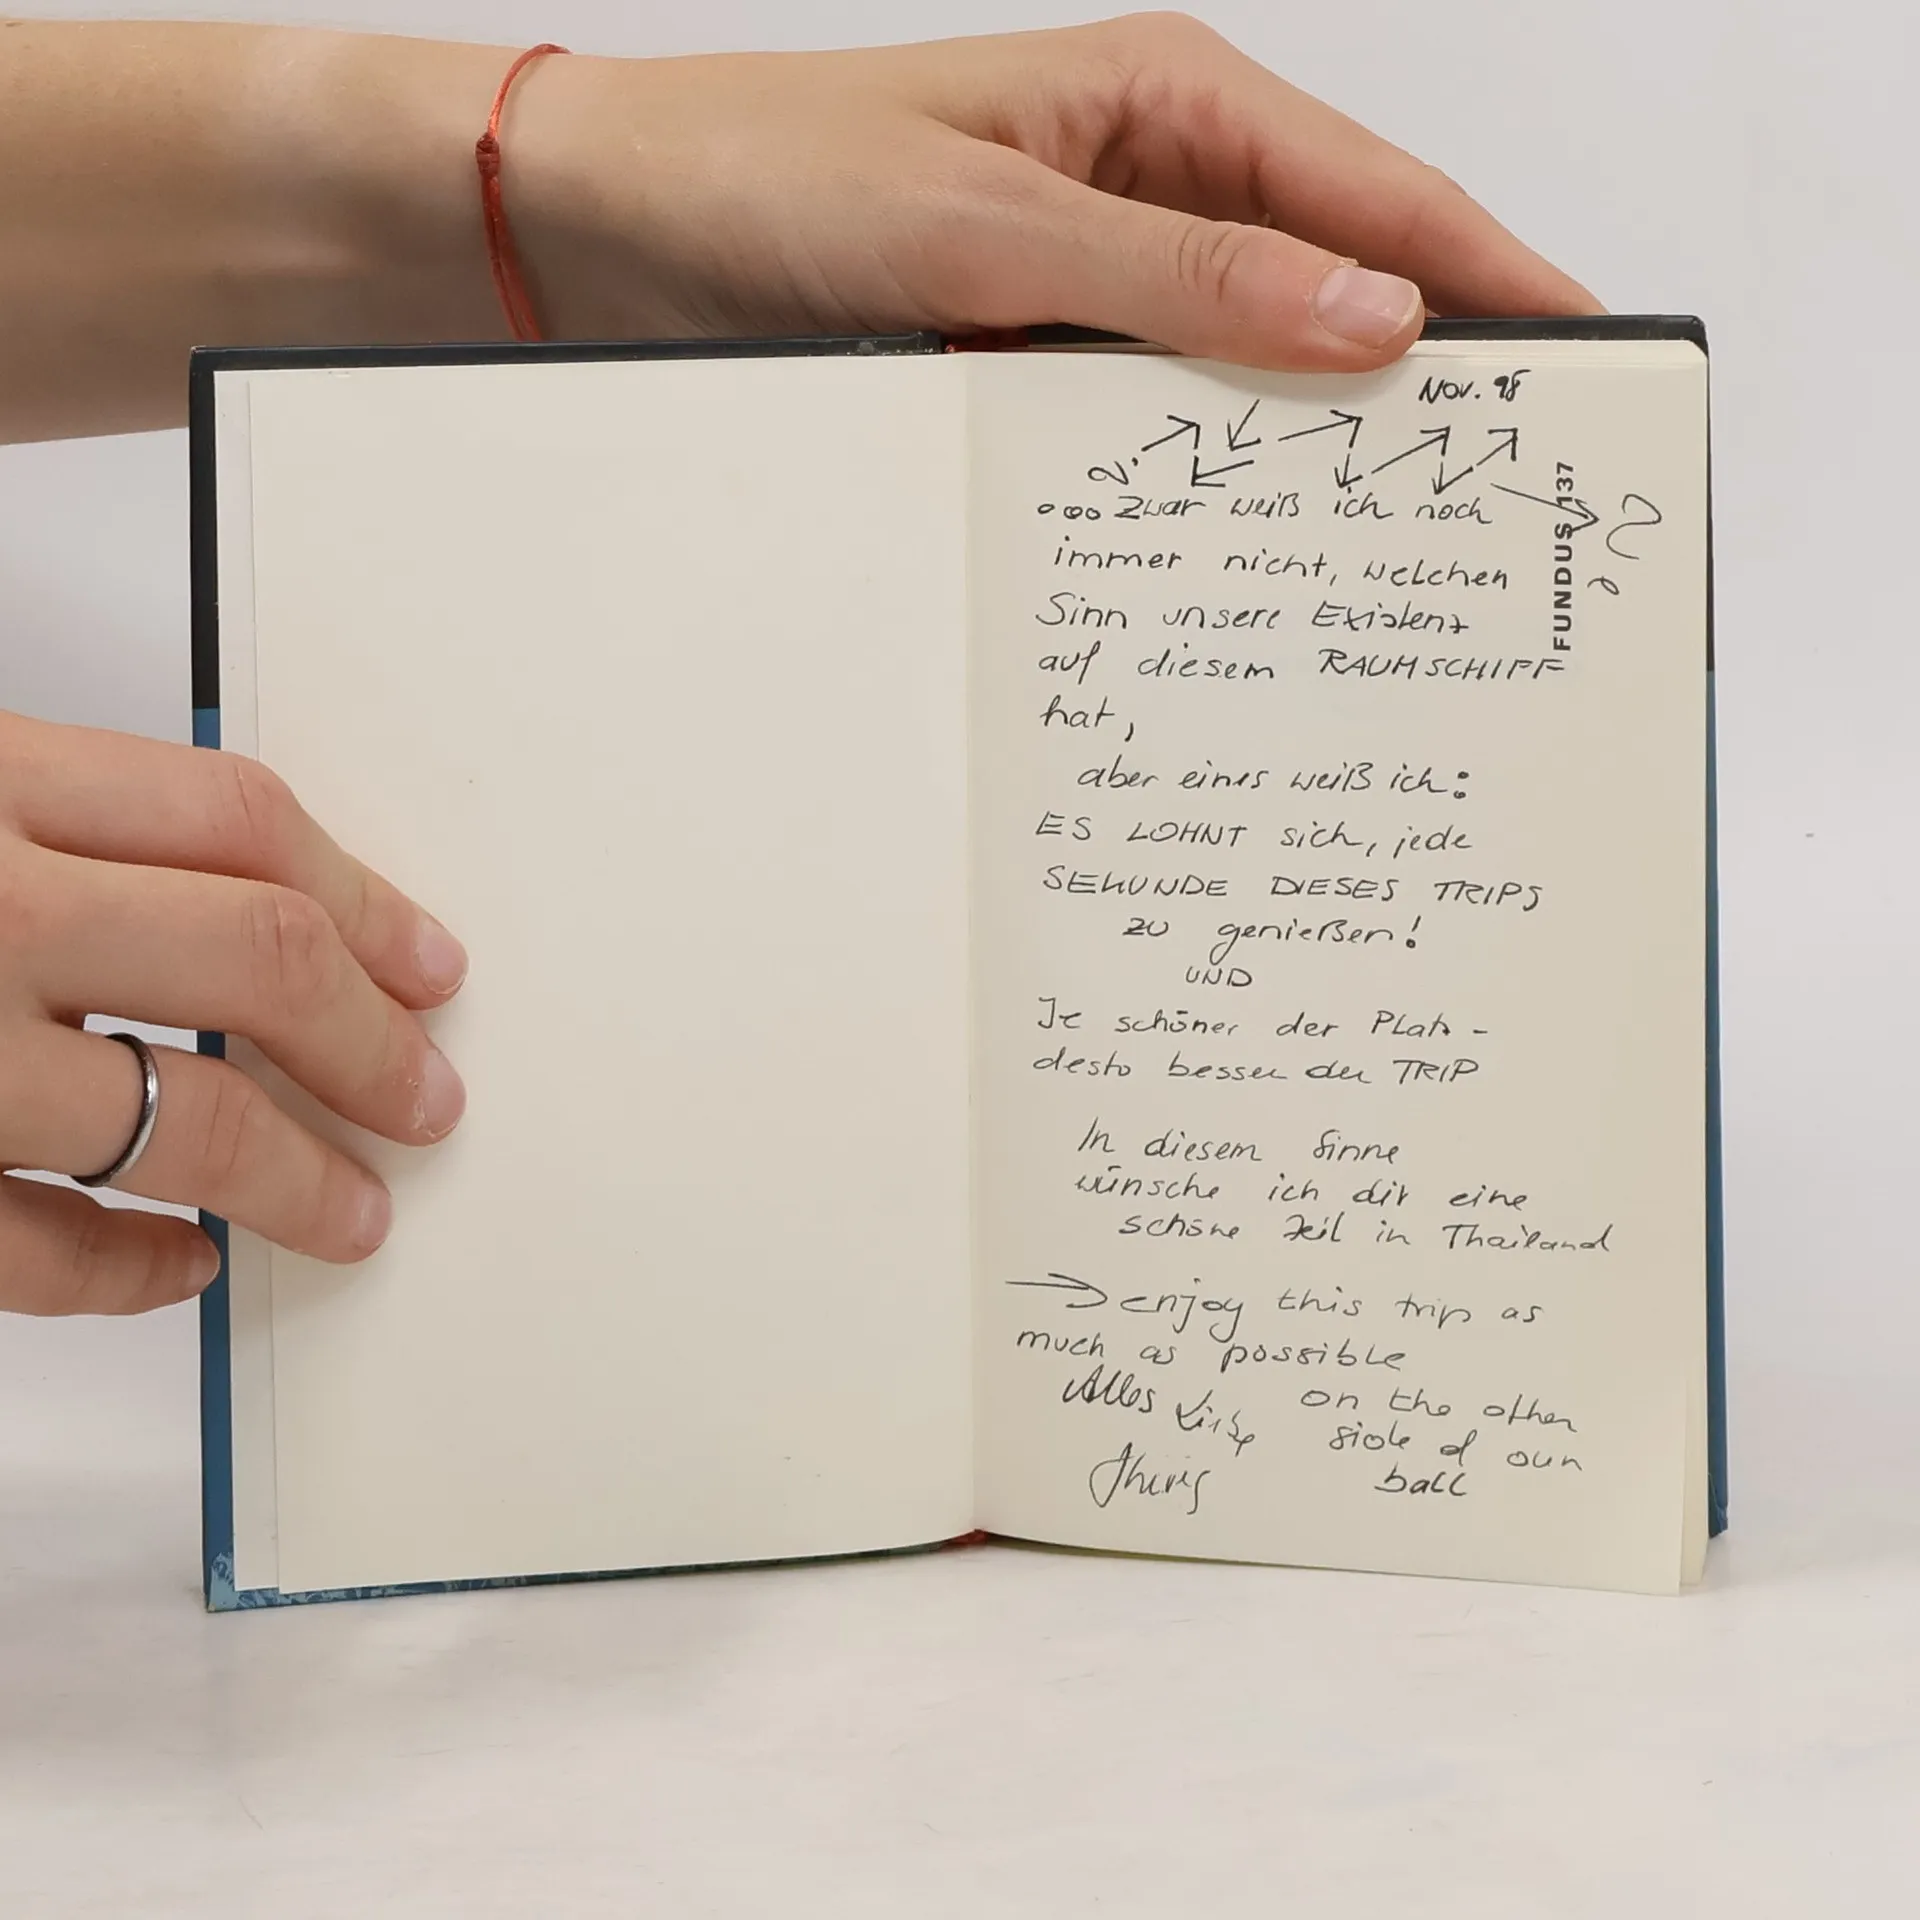 Nov. 98
FUNDUS 137
...zwar weiß ich noch
immer nicht, welchen
Sinn unsere Existenz
auf diesem RAUMSCHIFF
hat,
aber eines weiß ich:
ES LOHNT sich, jede
SEKUNDE DIESES TRIPS
zu genießen!
UND
Je schöner der Platz -
desto besser der TRIP
In diesem Sinne
wünsche ich dir eine
schöne Zeit in Thailand
enjoy this trip as
much as possible
on the other
side of our
ball
Alles Liebe